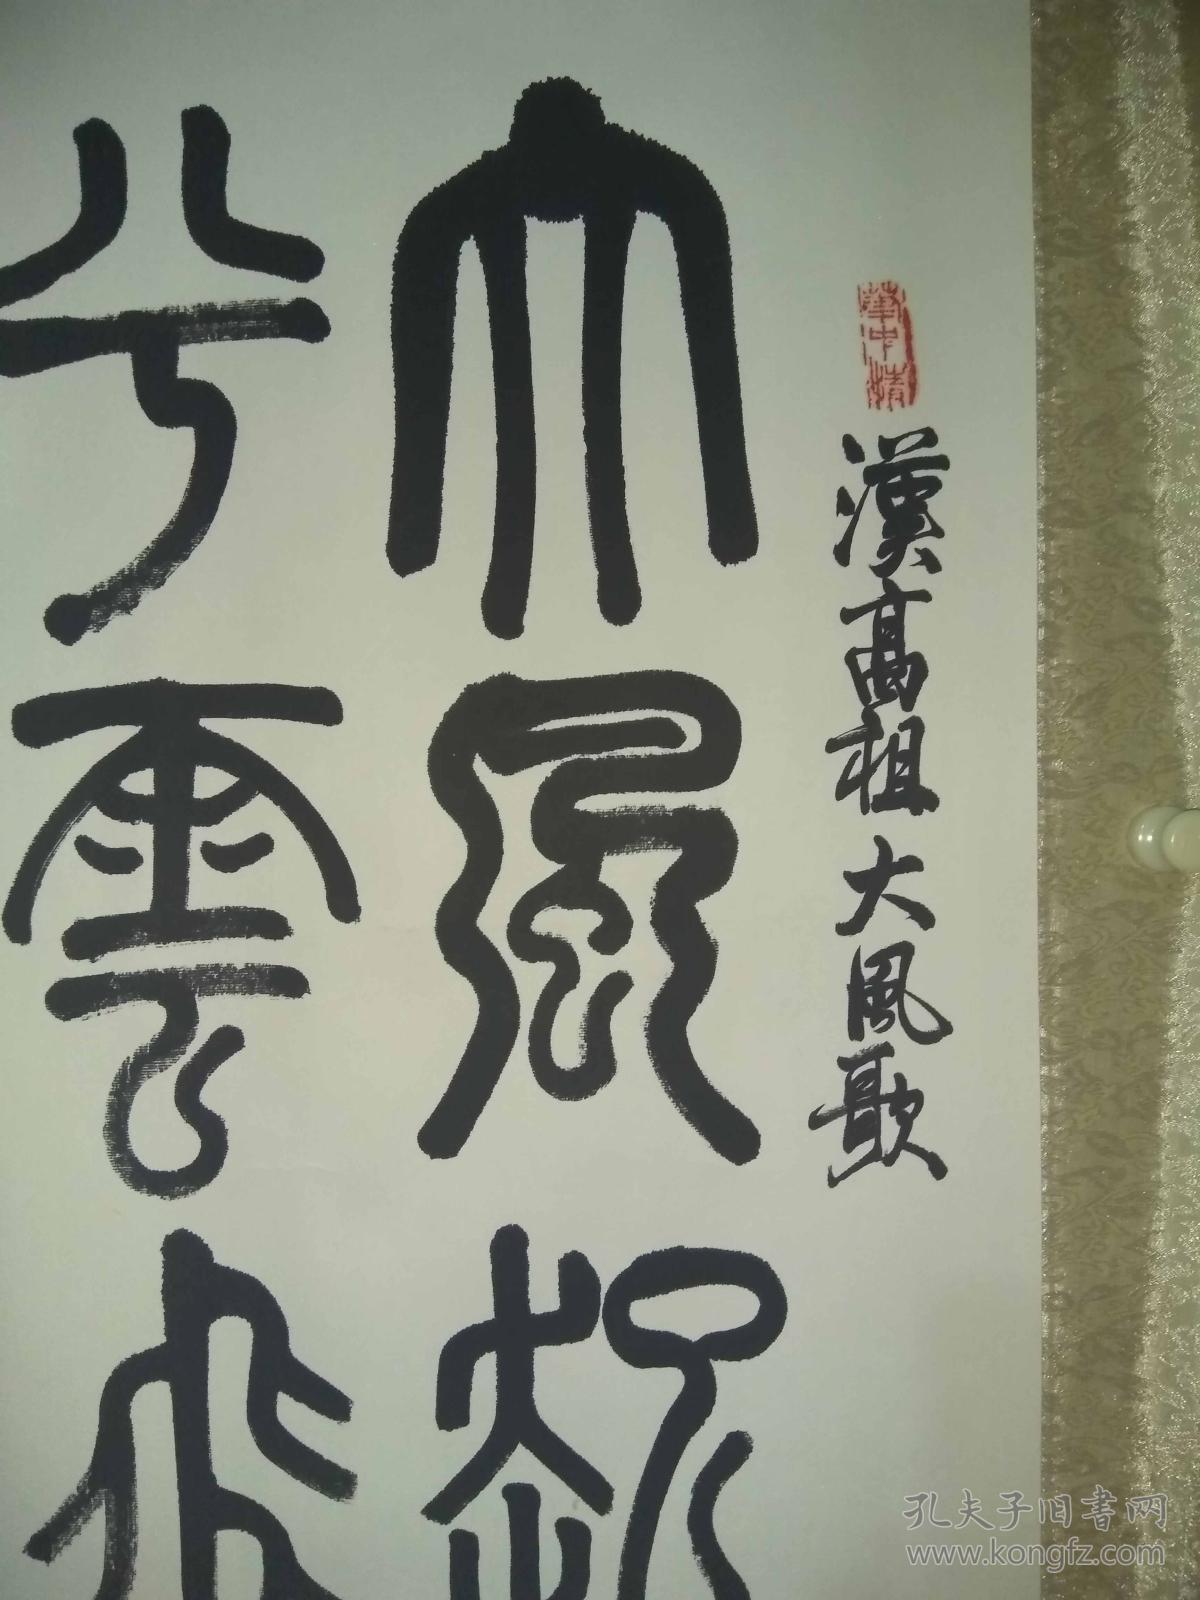 華中情
漢高祖大風歌
大風起
兮雲飛
孔夫子旧书网
www.kongfz.com